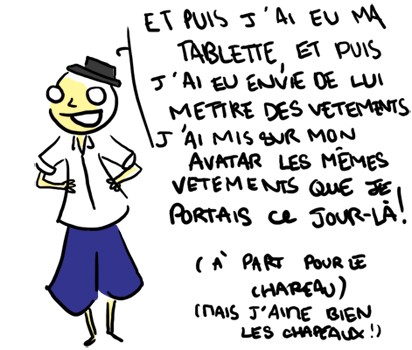 ET PUIS J'AI EU MA
TABLETTE, ET PUIS
J'AI EU ENVIE DE LUI
METTRE DES VETEMENTS
J'AI MIS SUR MON
AVATAR LES MÊMES
VETEMENTS QUE JE
PORTAIS CE JOUR-LÀ!
(À PART POUR LE
CHAPEAU)
(MAIS J'AIME BIEN
LES CHAPEAUX!)